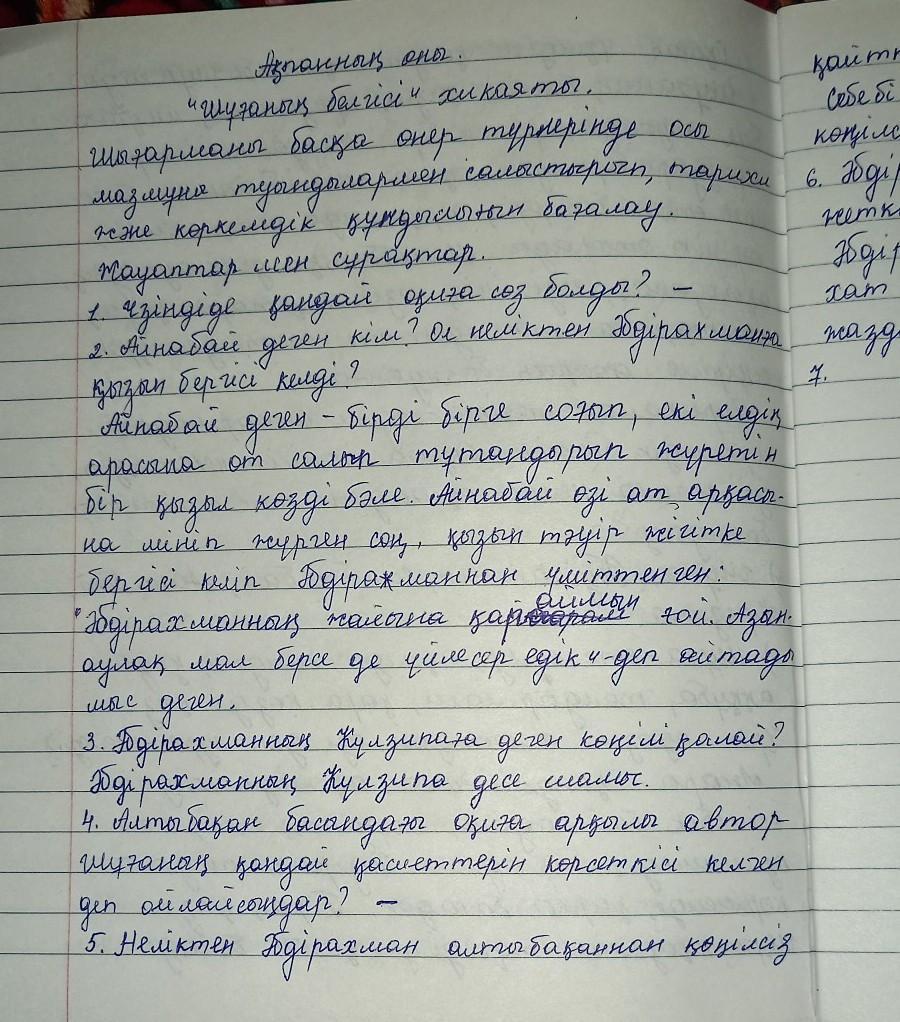 Ақпанның оны.
"Шұғаның белгісі" хикаяты.
Шығарманы басқа өнер түрлерінде осы
мазмұны туындылармен салыстырып, тарихи
және көркемдік құндылығын бағалау.
Жауаптар мен сұрақтар.
1. Үзіндіде қандай оқиға сөз болды? –
2. Айнабай деген кім? Ол неліктен Әбдірахманға
қызын бергісі келді?
Айнабай деген – бірді бірге соғып, екі елдің
арасына от салып тұтандырып жүретін
бір қызыл көзді бәле. Айнабай өзі ат арқасы-
на мініп жүрген соң, қызын тәуір жігітке
бергісі келіп Әбдірахманнан үміттенген:
"Әбдірахманның жалына қараймын ғой. Азын-
аулақ мал берсе де үйлесер едік"-деп айтады
мыс деген.
3. Әбдірахманның Күлзипаға деген көңілі қалай?
Әбдірахманның Күлзипа десе шамыс.
4. Алтыбақан басындағы оқиға арқылы автор
Шұғаның қандай қасиеттерін көрсеткісі келген
деп ойлайсыңдар? –
5. Неліктен Әбдірахман алтыбақаннан көңілсіз
қайт
Себебі
көңілс
6. Әбдір
жетк
Әбдір
хат
жазд
7.